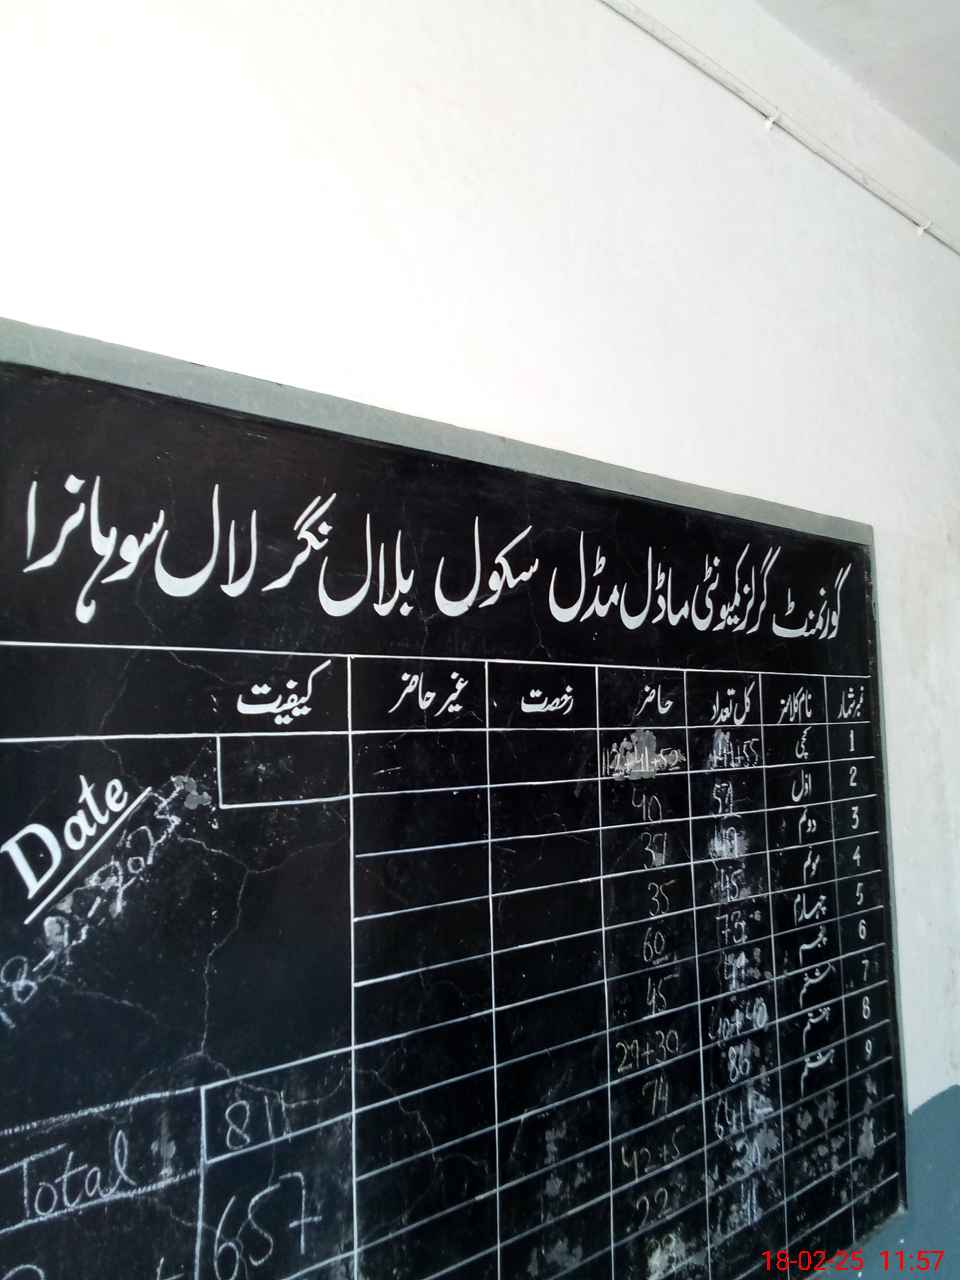 گورنمنٹ گرلز کمیونٹی ماڈل مڈل سکول بلال نگر لال سوہانرا
نمبر شمار نام کلاسز کل تعداد حاضر رخصت غیر حاضر کیفیت
1 کچی
2 اول 40
3 دوئم 37
4 سوئم 45 35
5 چہارم 73 60
6 پنجم 45
7 ششم 40+40 27+30
8 ہفتم 86 74
9 ہشتم 42+5
22
Date
18-2-2025
Total 811
657
18-02-25 11:57